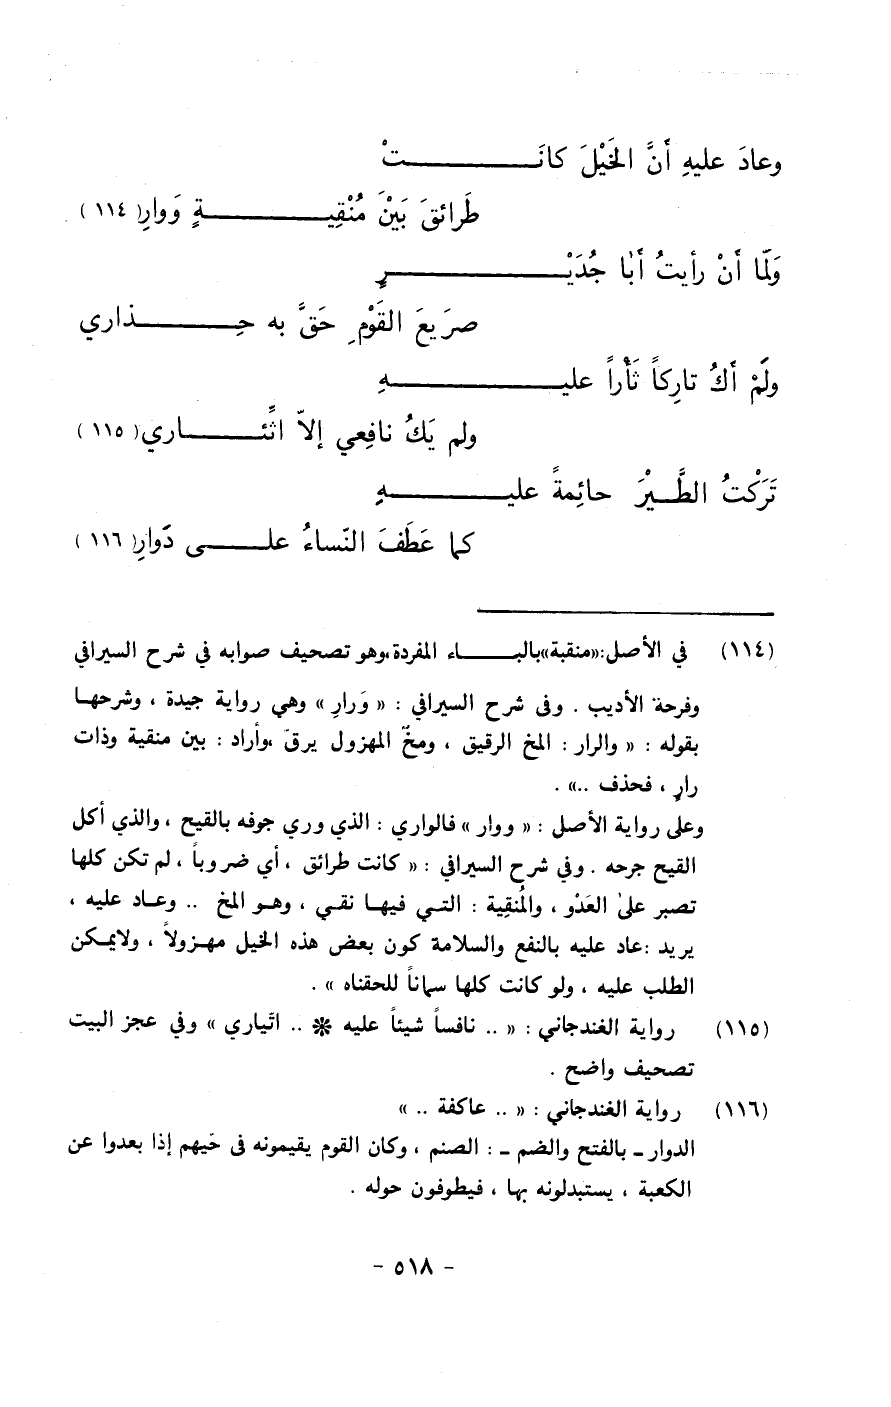 وعادَ عليهِ أَنَّ الخَيْلَ كانَــــــــتْ
طَرائقَ بَيْنَ مُنْقِيــــــــةٍ وَوارِ( ١١٤ )
وَلمّا أَنْ رأيتُ أَبٰا جُدَيْــــــــرٍ
صرَيعَ القَوْمِ حَقَّ به حِــــــــذاري
ولَمْ أَكُ تارِكاً ثَأْراً عليــــــــهِ
ولم يَكُ نافِعي إلاّ اثِّئــــــــاري( ١١٥ )
تَرَكْتُ الطَّــيْرَ حائِمةً عليــــــــهِ
كما عَطَفَ النّساءُ علــــــــى دَوارِ( ١١٦ )
(١١٤) في الأصل:«منقبة»بالبــــاء المفردة،وهو تصحيف صوابه في شرح السيرافي
وفرحة الأديب . وفى شرح السيرافي : « وَرارِ » وهي رواية جيدة ، وشرحهـا
بقوله : « والرار : المخ الرقيق ، ومخّ المهزول يرقّ ،وأراد : بين منقية وذات
رارٍ ، فحذف ..» .
وعلى رواية الأصل : « ووار » فالواري : الذي وري جوفه بالقيح ، والذي أكل
القيح جرحه . وفي شرح السيرافي : « كانت طرائق ، أي ضروباً ، لم تكن كلها
تصبر علىٰ العَدْو ، والمُنقِية : التـي فيهـا نقي ، وهـو المخ .. وعـاد عليه ،
يريد :عاد عليه بالنفع والسلامة كون بعض هذه الخيل مهـزولاً ، ولايمكن
الطلب عليه ، ولو كانت كلها سماناً للحقناه » .
(١١٥) رواية الغندجاني : « .. نافساً شيئاً عليه * .. اتّياري » وفي عجز البيت
تصحيف واضح .
(١١٦) رواية الغندجاني : « .. عاكفة .. »
الدوار ـ بالفتح والضم ـ : الصنم ، وكان القوم يقيمونه فى حَيهم إذا بعدوا عن
الكعبة ، يستبدلونه بها ، فيطوفون حوله .
- ٥١٨ -